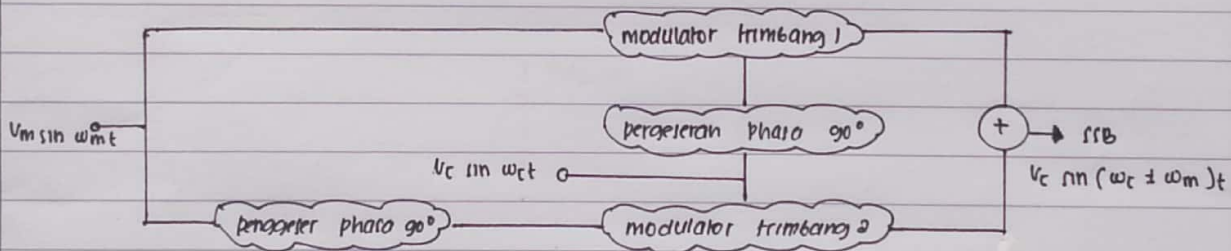 modulator trimbang 1
Vm sin ωmt
pergeseran phasa 90°
+
SSB
Vc sin ωct
Vc sin (ωc ± ωm)t
penggeser phasa 90°
modulator trimbang 2